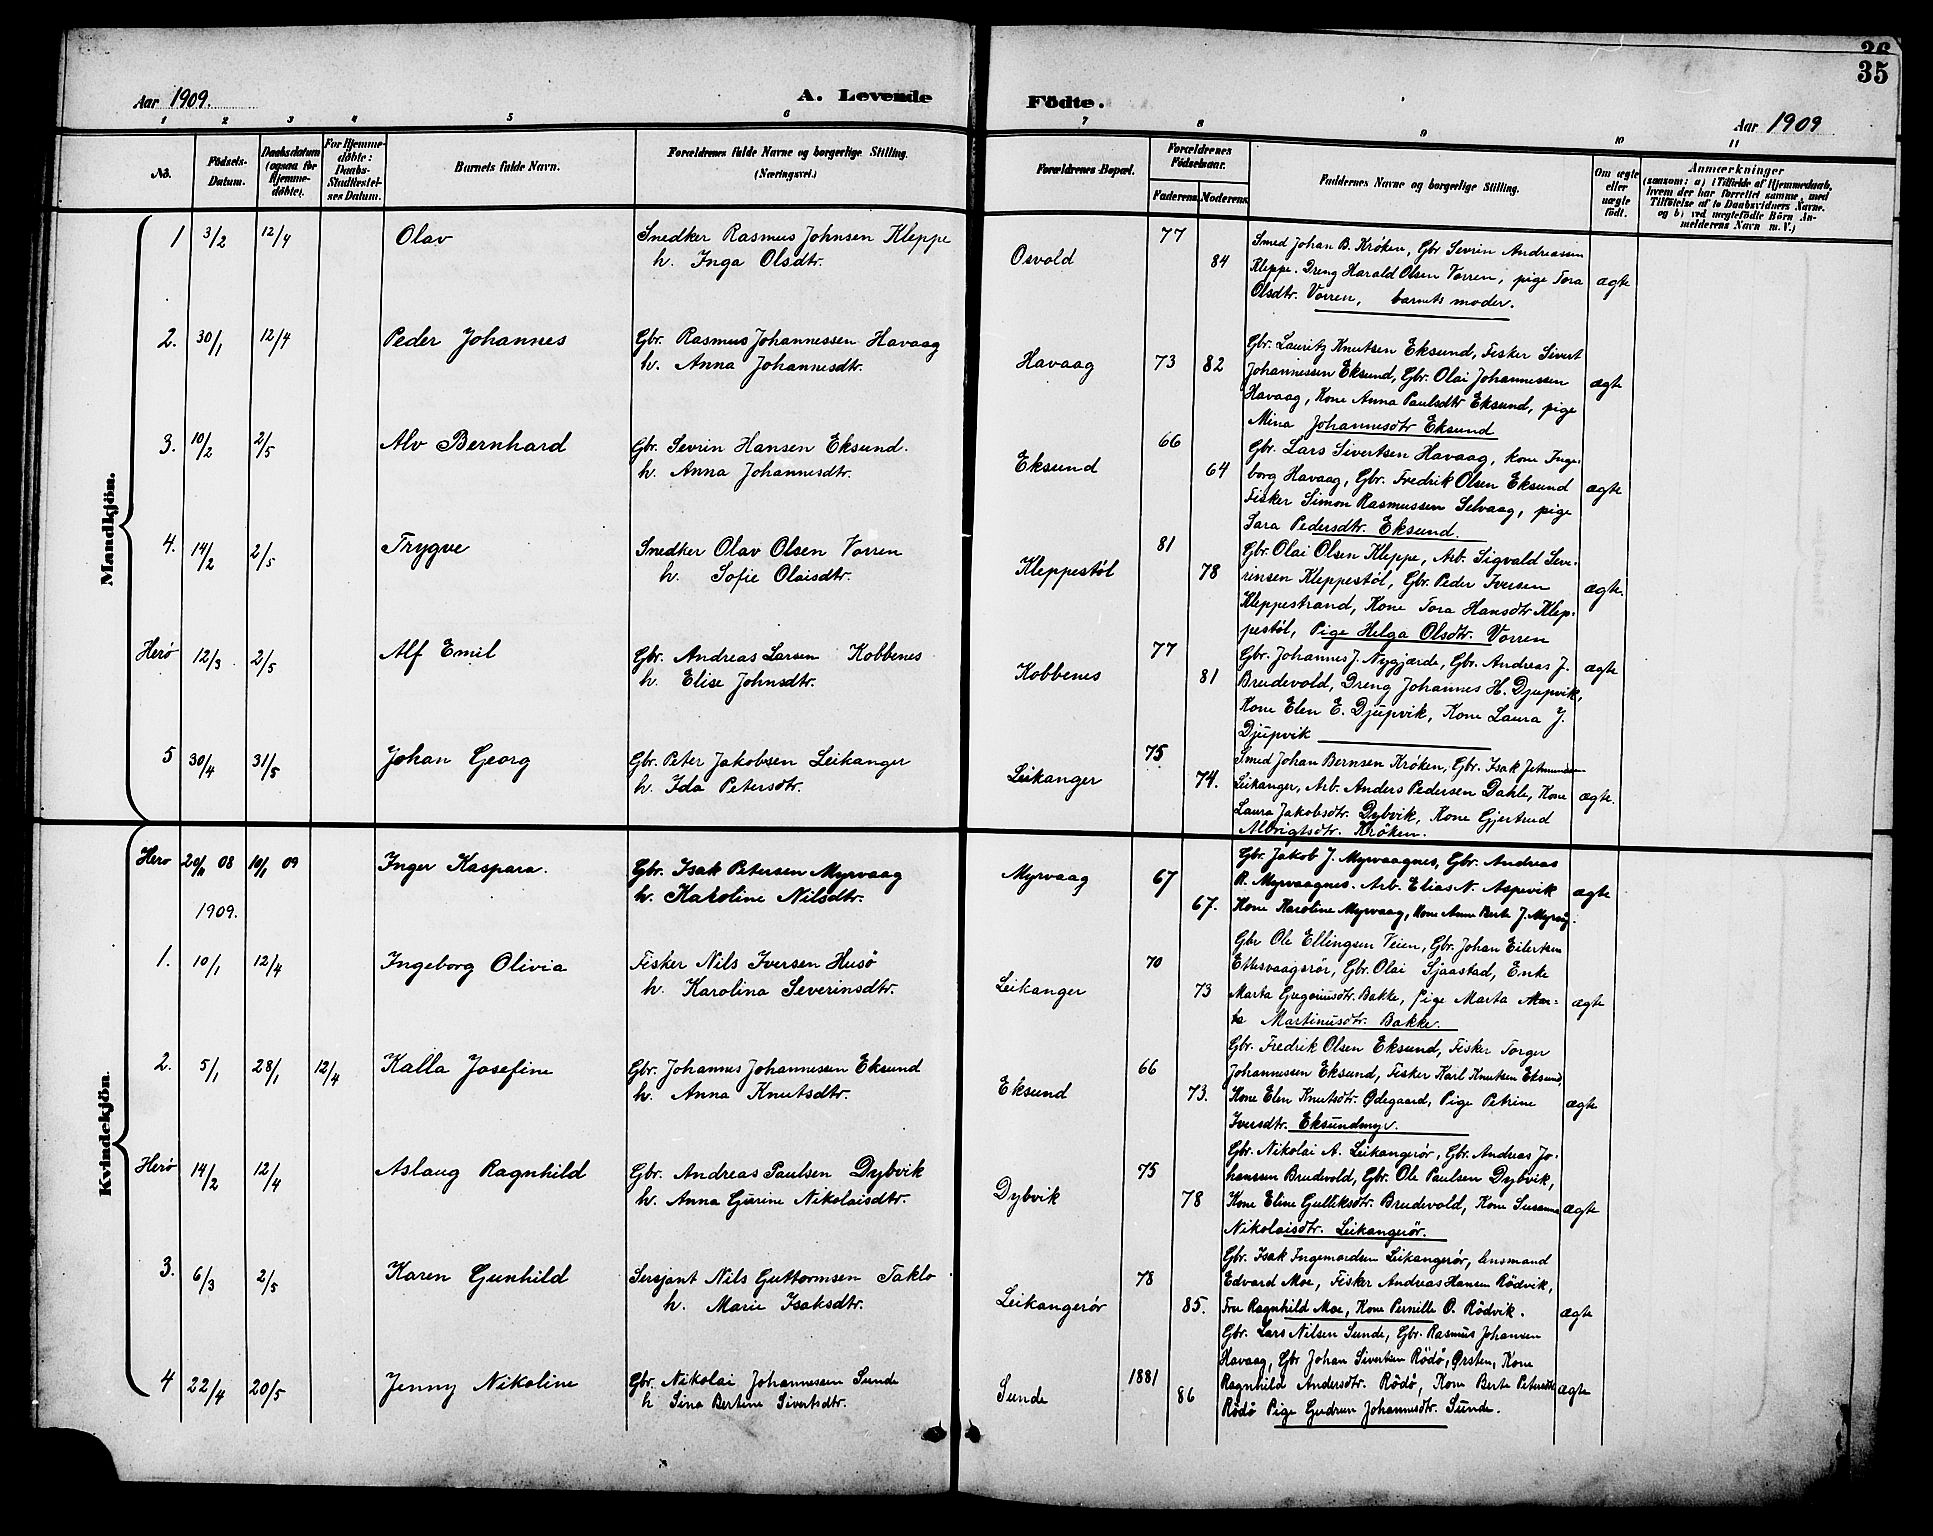 36
35
Aar 1909.
A. Levende
Födte.
Aar 1909
1 2 3 4 5 6 7 8 9 10 11
No.
Födsels-
Datum.
Daabsdatum
(ogsaa for
Hjemme-
döbte).
For Hjemme-
döbte:
Daabs-
Stadfæstel-
ses Datum.
Barnets fulde Navn.
Forældrenes fulde Navne og borgerlige Stilling.
(Næringsvei.)
Forældrenes Bopæl.
Forældrenes
Födselsaar.
Faderens. Moderens.
Faddernes Navne og borgerlige Stilling.
Om ægte
eller
uægte
födt.
Anmærkninger
(saasom: a) i Tilfælde af Hjemmedaab,
hvem der har forrettet samme, med
Tilföielse af to Daabsvidners Navne,
og b) ved uægtefödte Börn An-
melderens Navn m. V.)
Mandkjön.
1 3/2 12/4 Olav
Snedker Rasmus Johnsen Kleppe
h. Inga Olsdtr.
Osvold 77 84
Smed Johan B. Kröken, Gbr Sevrin Andreassen
Kleppe. Dreng Harald Olsen Vorren, pige Tora
Olsdtr. Vorren, barnets moder.
ægte
2. 30/1 12/4 Peder Johannes
Gbr. Rasmus Johannessen Havaag
h. Anna Johannesdtr.
Havaag 73 82
Gbr. Lauritz Knutsen Eksund, Fisker Sivert
Johannessen Eksund, Gbr. Olai Johannessen
Havaag, Kone Anna Paulsdtr Eksund, pige
Mina Johannesdtr Eksund
ægte
3. 10/2 2/5 Alv Bernhard
Gbr. Sevrin Hansen Eksund.
h. Anna Johannesdtr.
Eksund 66 64
Gbr. Lars Sivertsen Havaag, kone Inge-
borg Havaag, Gbr. Fredrik Olsen Eksund
Fisker Simon Rasmussen Selvaag, pige
Sara Pedersdtr. Eksund.
ægte
4. 14/2 2/5 Trygve
Snedker Olav Olsen Vorren
h. Sofie Olaisdtr.
Kleppestöl 81 78
Gbr. Olai Olsen Kleppe, Arb. Sigvald Seve-
rinsen Kleppestöl, Gbr. Peder Iversen
Kleppestrand, Kone Tora Hansdtr Klep-
pestöl, Pige Helga Olsdtr. Vorren
ægte.
Herö 12/3 2/5 Alf Emil
Gbr. Andreas Larsen Kobbenes
h. Elise Johnsdtr.
Kobbenes 77 81
Gbr. Johannes J. Nygjærde, Gbr. Andreas J.
Brudevold, Dreng Johannes H. Djupvik,
Kone Elen E. Djupvik, Kone Laura J.
Djupvik
ægte
5 30/4 31/5 Johan Georg
Gbr. Peter Jakobsen Leikanger
h. Ida Petersdtr.
Leikanger 75 74.
Smed Johan Bernsen Kröken, Gbr. Isak Jetmundsen
Leikanger, Arb. Anders Pedersen Dahle, Kone
Laura Jakobsdtr. Dybvik, Kone Gjertrud
Albrigtsdtr. Kröken.
ægte.
Kvindekjön.
Herö 20/11 08 10/1 09 Inger Kaspara.
Gbr. Isak Petersen Myrvaag
h. Karoline Nilsdtr.
Myrvaag 67 67.
Gbr. Jakob J. Myrvaagnes, Gbr. Andreas
R. Myrvaagnes. Arb. Elias N. Aspevik
Kone Karoline Myrvaag, Kone Anne Berte J. Myrvg.
ægte
1909.
1. 10/1 12/4 Ingeborg Olivia
Fisker Nils Iversen Husö
h. Karolina Severinsdtr.
Leikanger 70 73
Gbr Ole Ellingsen Veien, Gbr. Johan Eilertsen
Ettesvaagsrör, Gbr. Olai Sjaastad, Enke
Marta Gregoriusdtr. Bakke, Pige Marta Mar-
ta Martinusdtr. Bakke.
ægte
2. 5/1 28/1 12/4 Kalla Josefine
Gbr. Johannes Johannessen Eksund
h. Anna Knutsdtr.
Eksund 66 73.
Gbr. Fredrik Olsen Eksund, Fisker Torger
Johannessen Eksund, Fisker Karl Knutsen Eksund,
Kone Elen Knutsdtr. Ødegaard, Pige Petrine
Iversdtr. Eksundmyr.
ægte
Herö 14/2 12/4 Aslaug Ragnhild
Gbr. Andreas Paulsen Dybvik
h. Anna Gurine Nikolaisdtr.
Dybvik 75 78
Gbr. Nikolai A. Leikangerör, Gbr. Andreas Jo-
hanssen Brudevold, Gbr. Ole Paulsen Dybvik,
Kone Eline Gulliksdtr. Brudevold, Kone Susanna
Nikolaisdtr. Leikangerör.
ægte
3. 6/3 2/5 Karen Gunhild
Sersjant Nils Guttormsen Taklo
h. Marie Isaksdtr.
Leikangerör 78 85.
Gbr. Isak Ingemardsen Leikangerör, lensmand
Edvard Moe, Fisker Andreas Hansen Rödvik,
Fru Ragnhild Moe, Kone Pernille O. Rödvik.
ægte
4 22/4 20/5 Jenny Nikoline
Gbr. Nikolai Johannessen Sunde
h Sina Bertine Sivertsdtr.
Sunde 1881 86
Gbr. Lars Nilsen Sunde, Gbr. Rasmus Johansen
Havaag, Gbr Johan Sivertsen Rödö, Ørsten, Kone
Ragnhild Andersdtr. Rödö, Kone Berte Petersdtr
Rödö Pige Gudrun Johannesdtr. Sunde.
ægte